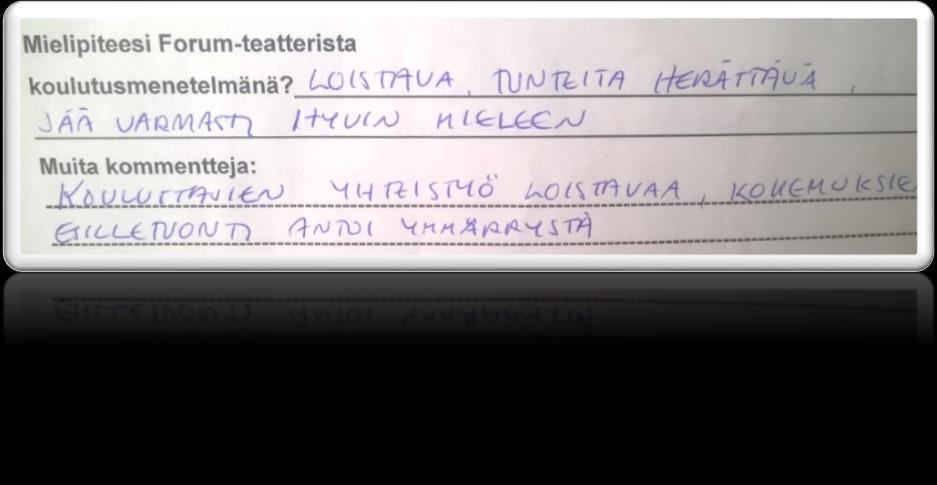 Mielipiteesi Forum-teatterista
koulutusmenetelmänä? LOISTAVA, TUNTEITA HERÄTTÄVÄ,
JÄÄ VARMASTI HYVIN MIELEEN
Muita kommentteja:
KOULUTTAJIEN YHTEISTYÖ LOISTAVAA, KOKEMUKSIE
ESILLETUONTI ANTOI YMMÄRRYSTÄ